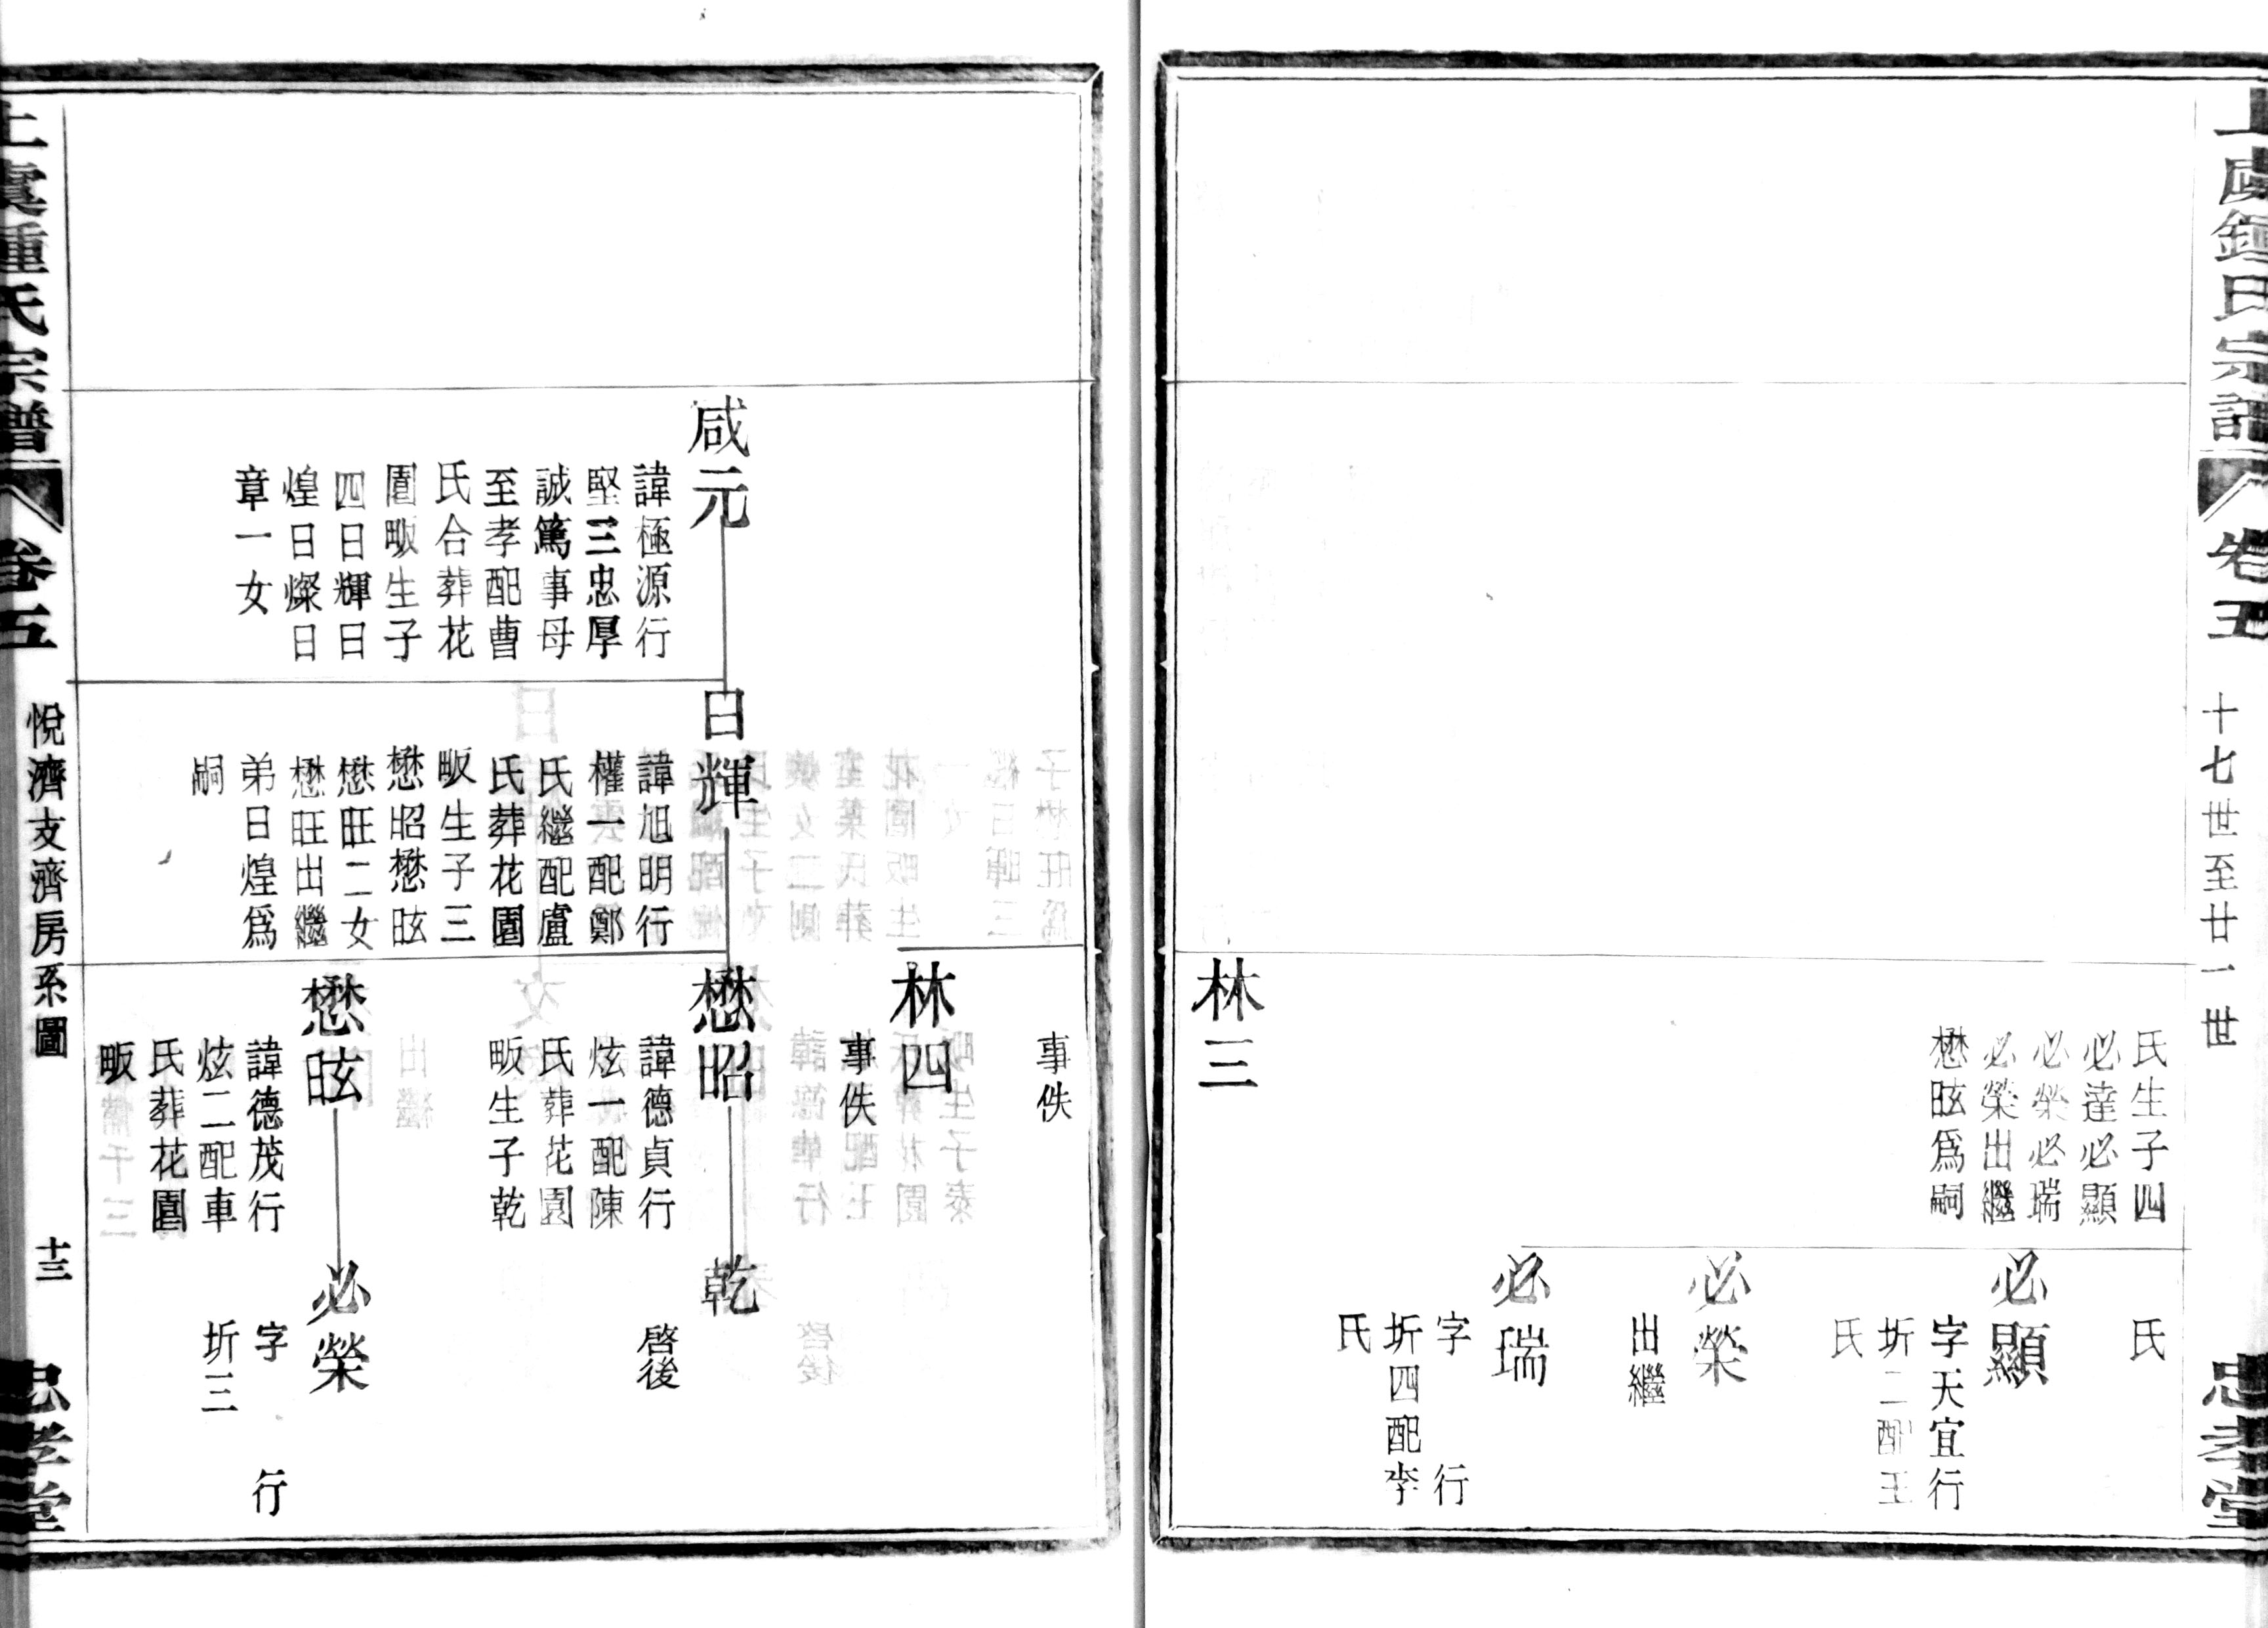 卷五
十七世至廿一世
氏生子四
必達必顯
必榮必瑞
必榮出繼
懋昡爲嗣
林三
氏
必顯
字天宜行
圻二配王
氏
必榮
出繼
必瑞
字　行
圻四配李
氏
事佚
林四
事佚
咸元
諱極源行
堅三忠厚
誠篤事母
至孝配曹
氏合葬花
園畈生子
四日輝日
煌日燦日
章一女
日輝
諱旭明行
權一配鄭
氏繼配盧
氏葬花園
畈生子三
懋昭懋昡
懋旺二女
懋旺出繼
弟日煌爲
嗣
懋昭
諱德貞行
炫一配陳
氏葬花園
畈生子乾
懋昡
諱德茂行
炫二配車
氏葬花園
畈
乾
啓後
必榮
字　行
圻三
上虞鍾氏宗譜
卷五
悅濟支濟房系圖
十三
忠孝堂